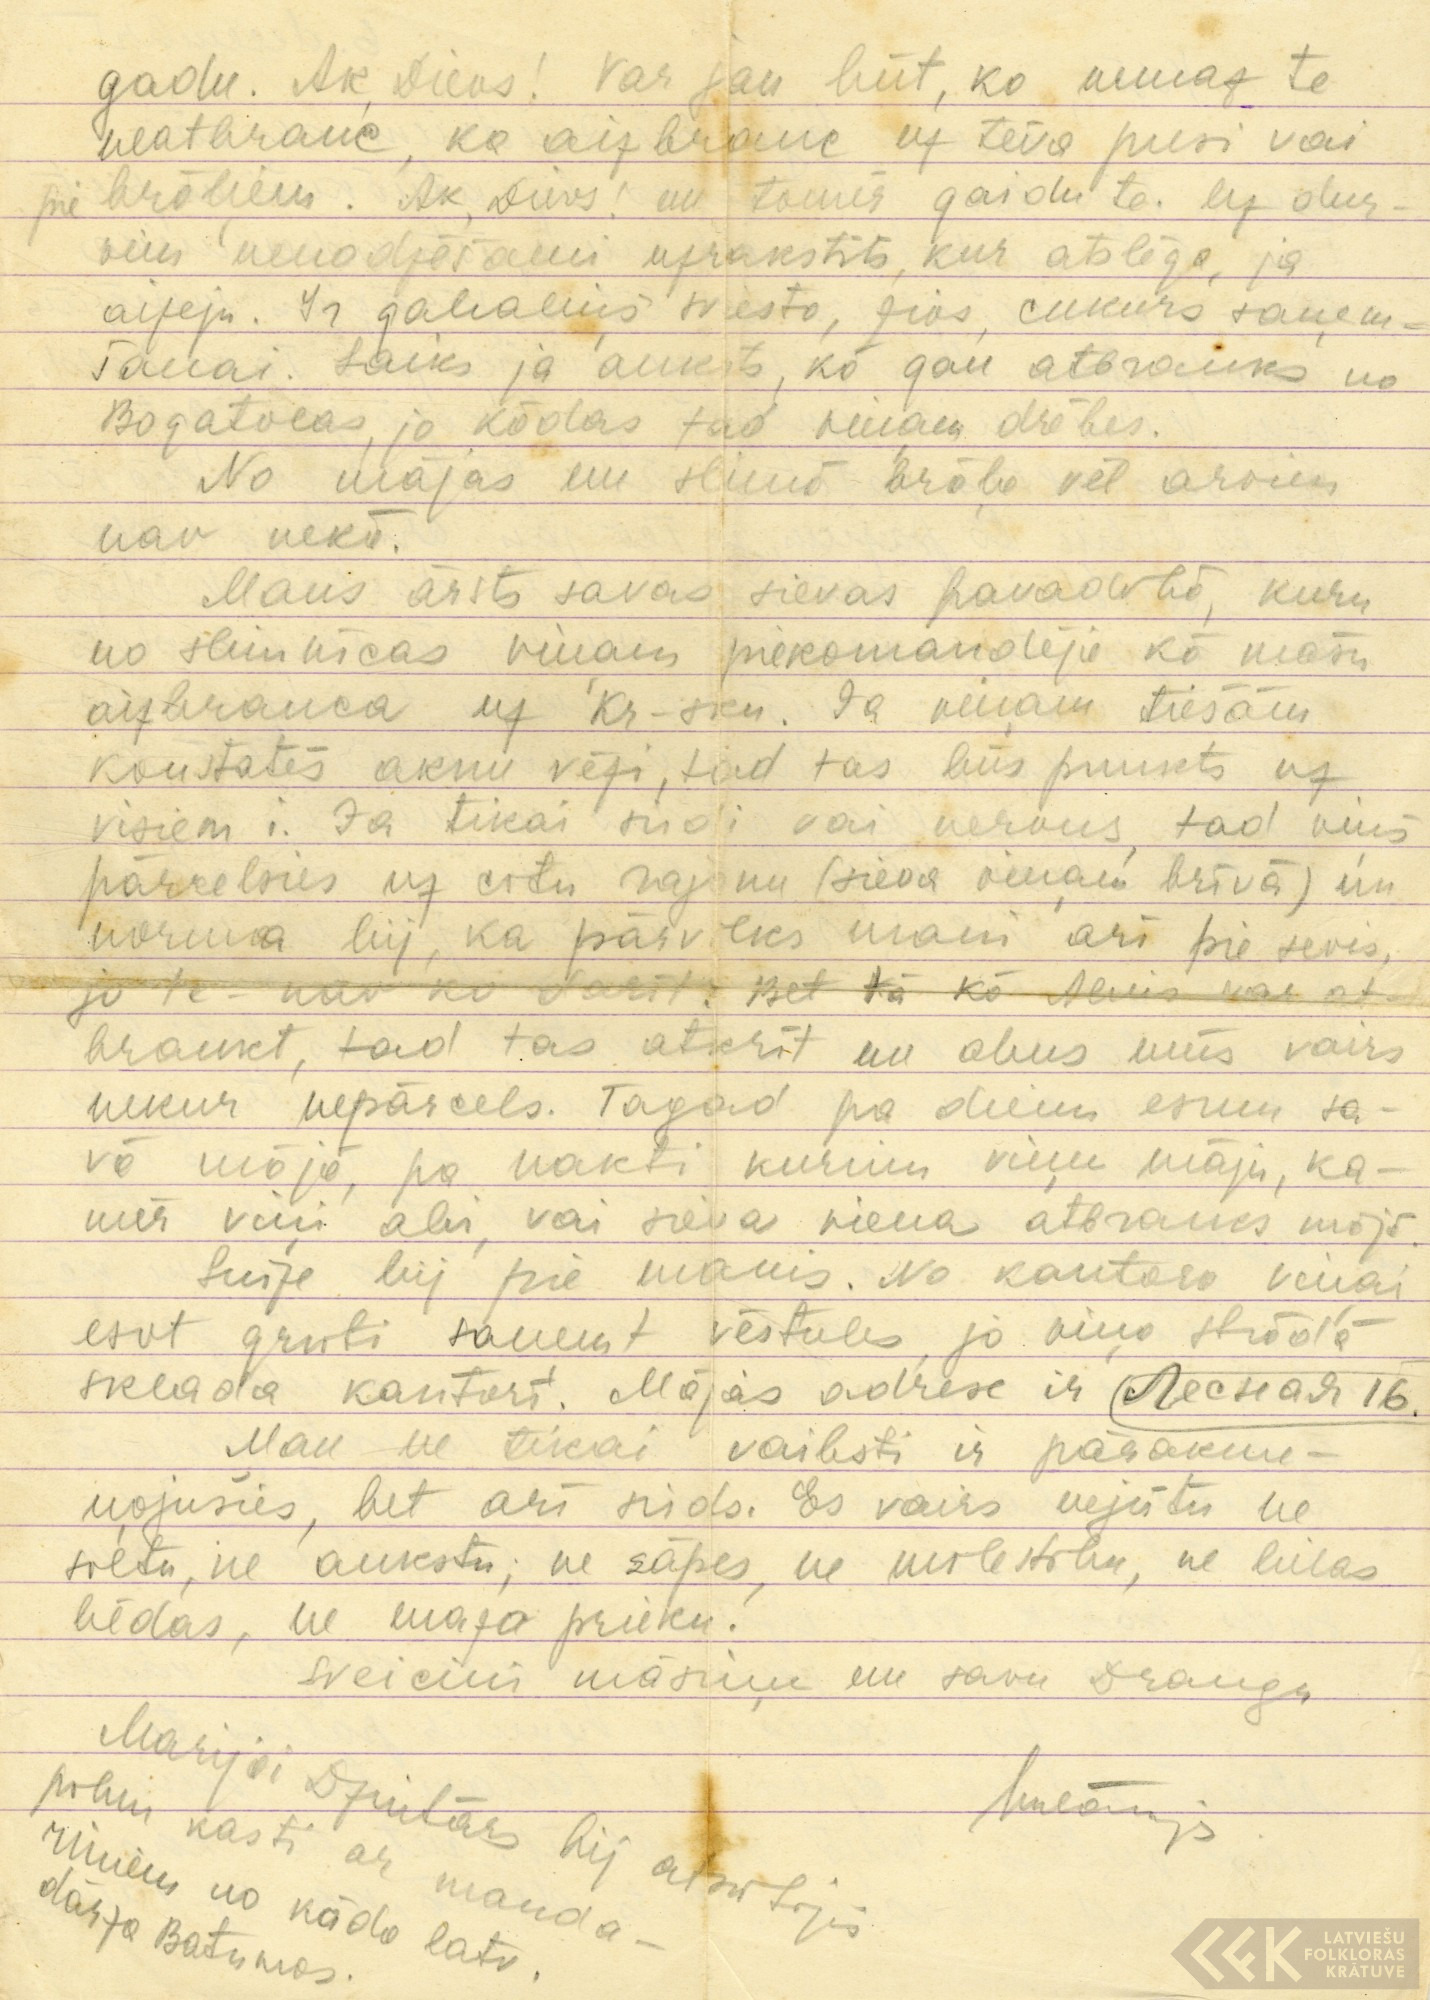 gadu. Ak, Dievs! Var jau būt, ka nemaz te
neatbrauc, ka aizbrauc uz tēva pusi vai
pie brāļiem. Ak, Dievs! un tomēr gaidu te. Uz dur-
vīm nenodzēšami uzrakstīts, kur atslēga, ja
aizeju. Ir gabaliņš sviesta, zivs, cukurs saņem-
šanai. Laiks ja auksts, kā gan atbrauks no
Bogatoļas, jo kādas tad viņam drēbes.
No mājas un slimā brāļa vēl arvien
nav nekā.
Mans ārsts savas sievas pavadībā, kuru
no slimnīcas viņam piekomandēja kā māsu
aizbrauca uz Kr-sku. Ja viņam tiešām
konstatēs aknu vēzi, tad tas būs punkts uz
visiem i. Ja tikai sirdi vai nervus, tad viņš
pārcelsies uz citu rajonu (sieva viņam brīvā) un
norma bij, ka pārvilks mani arī pie sevis,
jo te - nav ko darīt. Bet tā kā var at-
braukt, tad tas atkrīt un abus mūs vairs
nekur nepārcels. Tagad pa dienu esmu sa-
vā mājā, pa nakti kurinu viņu māju, ka-
mēr viņi abi, vai sieva viena atbrauks mājā.
Luīze bij pie manis. No kantora viņai
esot grūti saņemt vēstules, jo viņa strādā
sklada kantorī. Mājas adrese ir Лесная 16.
Man ne tikai vaibsti ir pārakme-
ņojušies, bet arī sirds. Es vairs nejūtu ne
siltu, ne aukstu; ne sāpes, ne mīlestību, ne lielas
bēdas, ne maza prieku.
Sveicini māsiņu un savu Draugu
Marijai Dzintars bij atsūtījis
pilnu kasti ar manda-
rīniem no kāda latv.
dārza Batumos.
LATVIEŠU
FOLKLORAS
KRĀTUVE